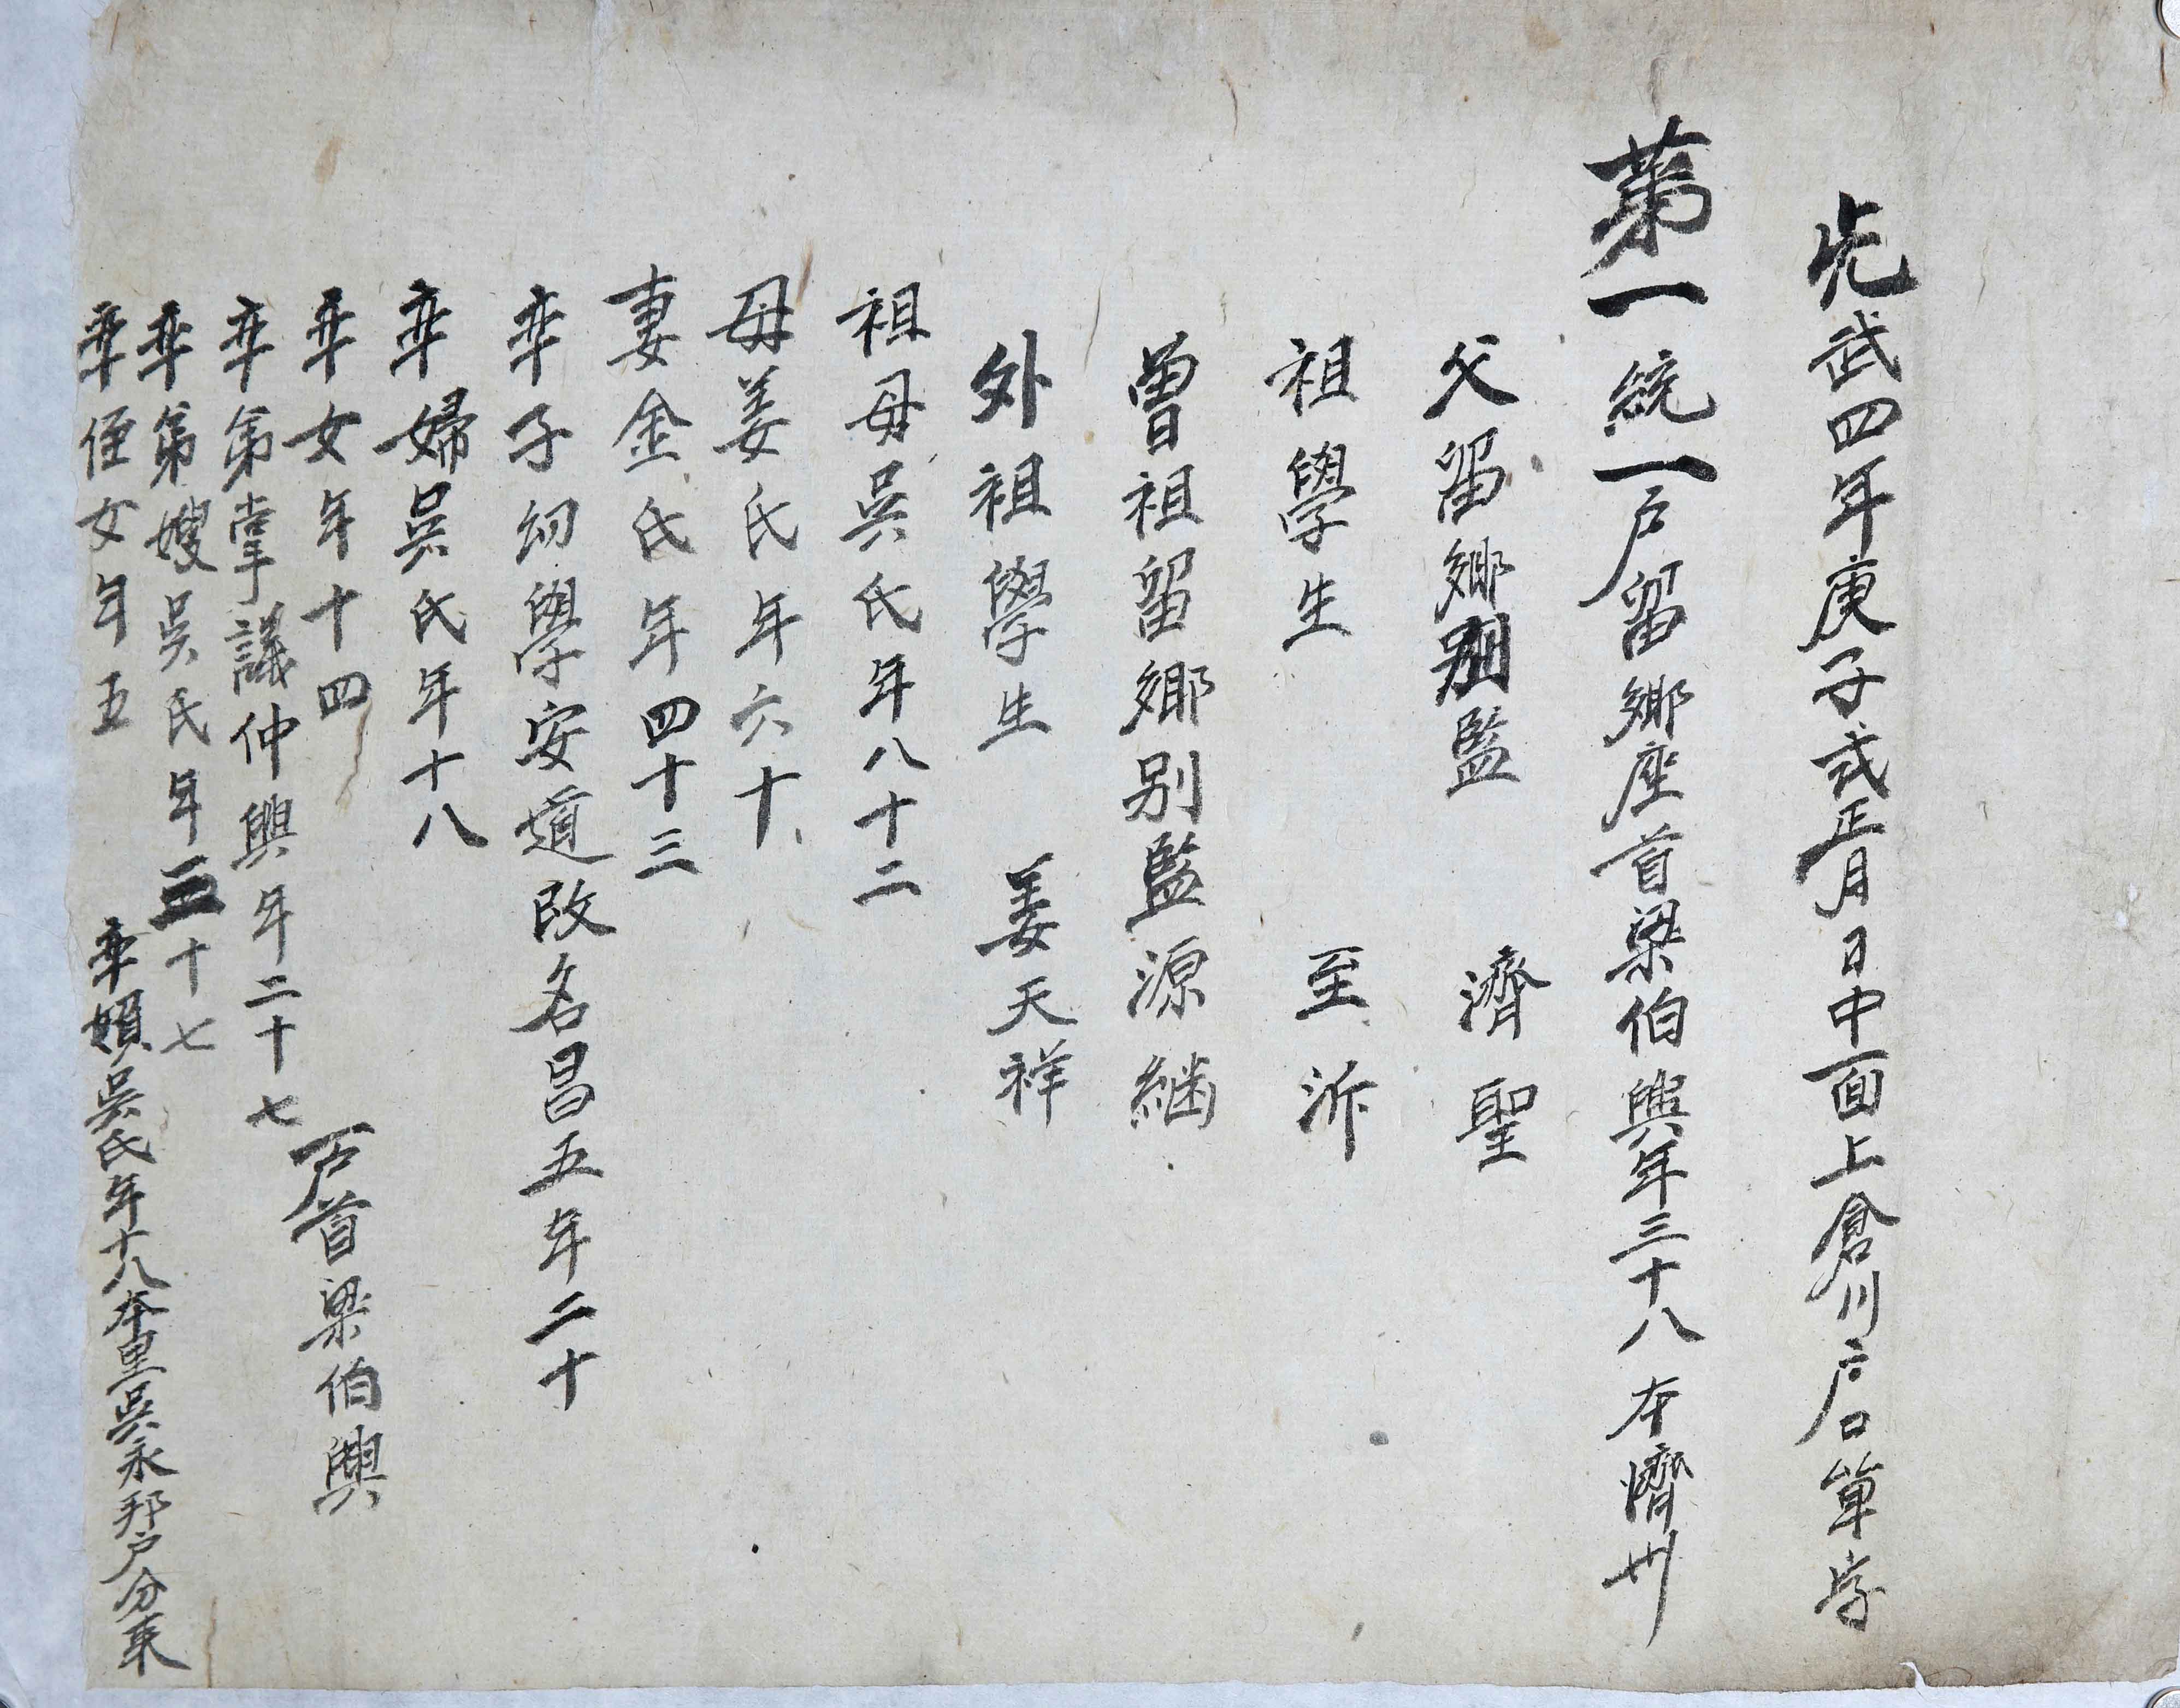 光武四年庚子式正月日中面上倉川戶口單字
第一統一戶留鄕座首梁伯興年三十八本濟州
父留鄕別監濟聖
祖學生至泝
曾祖留鄕別監源繼
外祖學生姜天祥
祖母吳氏年八十二
母姜氏年六十
妻金氏年四十三
率子幼學安道改名昌五年二十
率婦吳氏年十八
率女年十四
戶首梁伯興
率第掌議仲興年二十七
率第嫂吳氏年三十七
率侄女年五
率吳氏年十八本里吳永邦戶分來